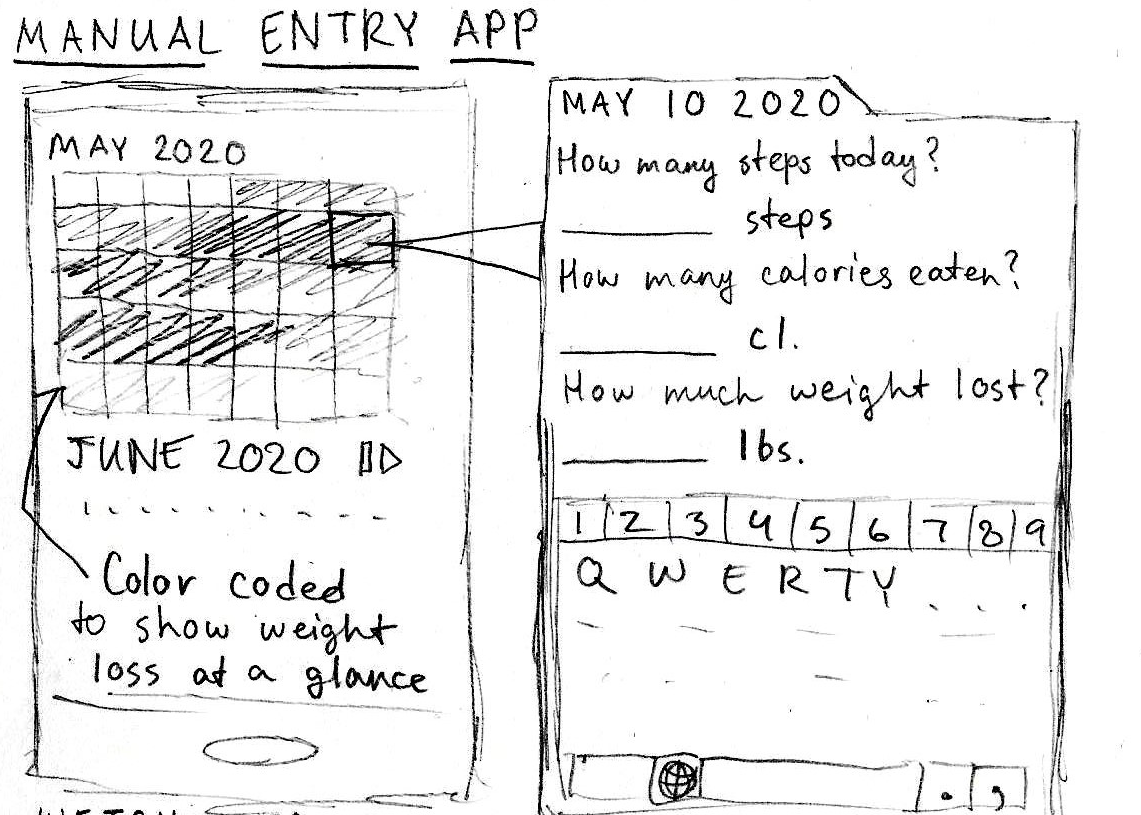 MANUAL ENTRY APP
MAY 2020
JUNE 2020
Color coded
to show weight
loss at a glance
MAY 10 2020
How many steps today?
steps
How many calories eaten?
cl.
How much weight lost?
lbs.
1 2 3 4 5 6 7 8 9
Q W E R T Y . . .
. ,